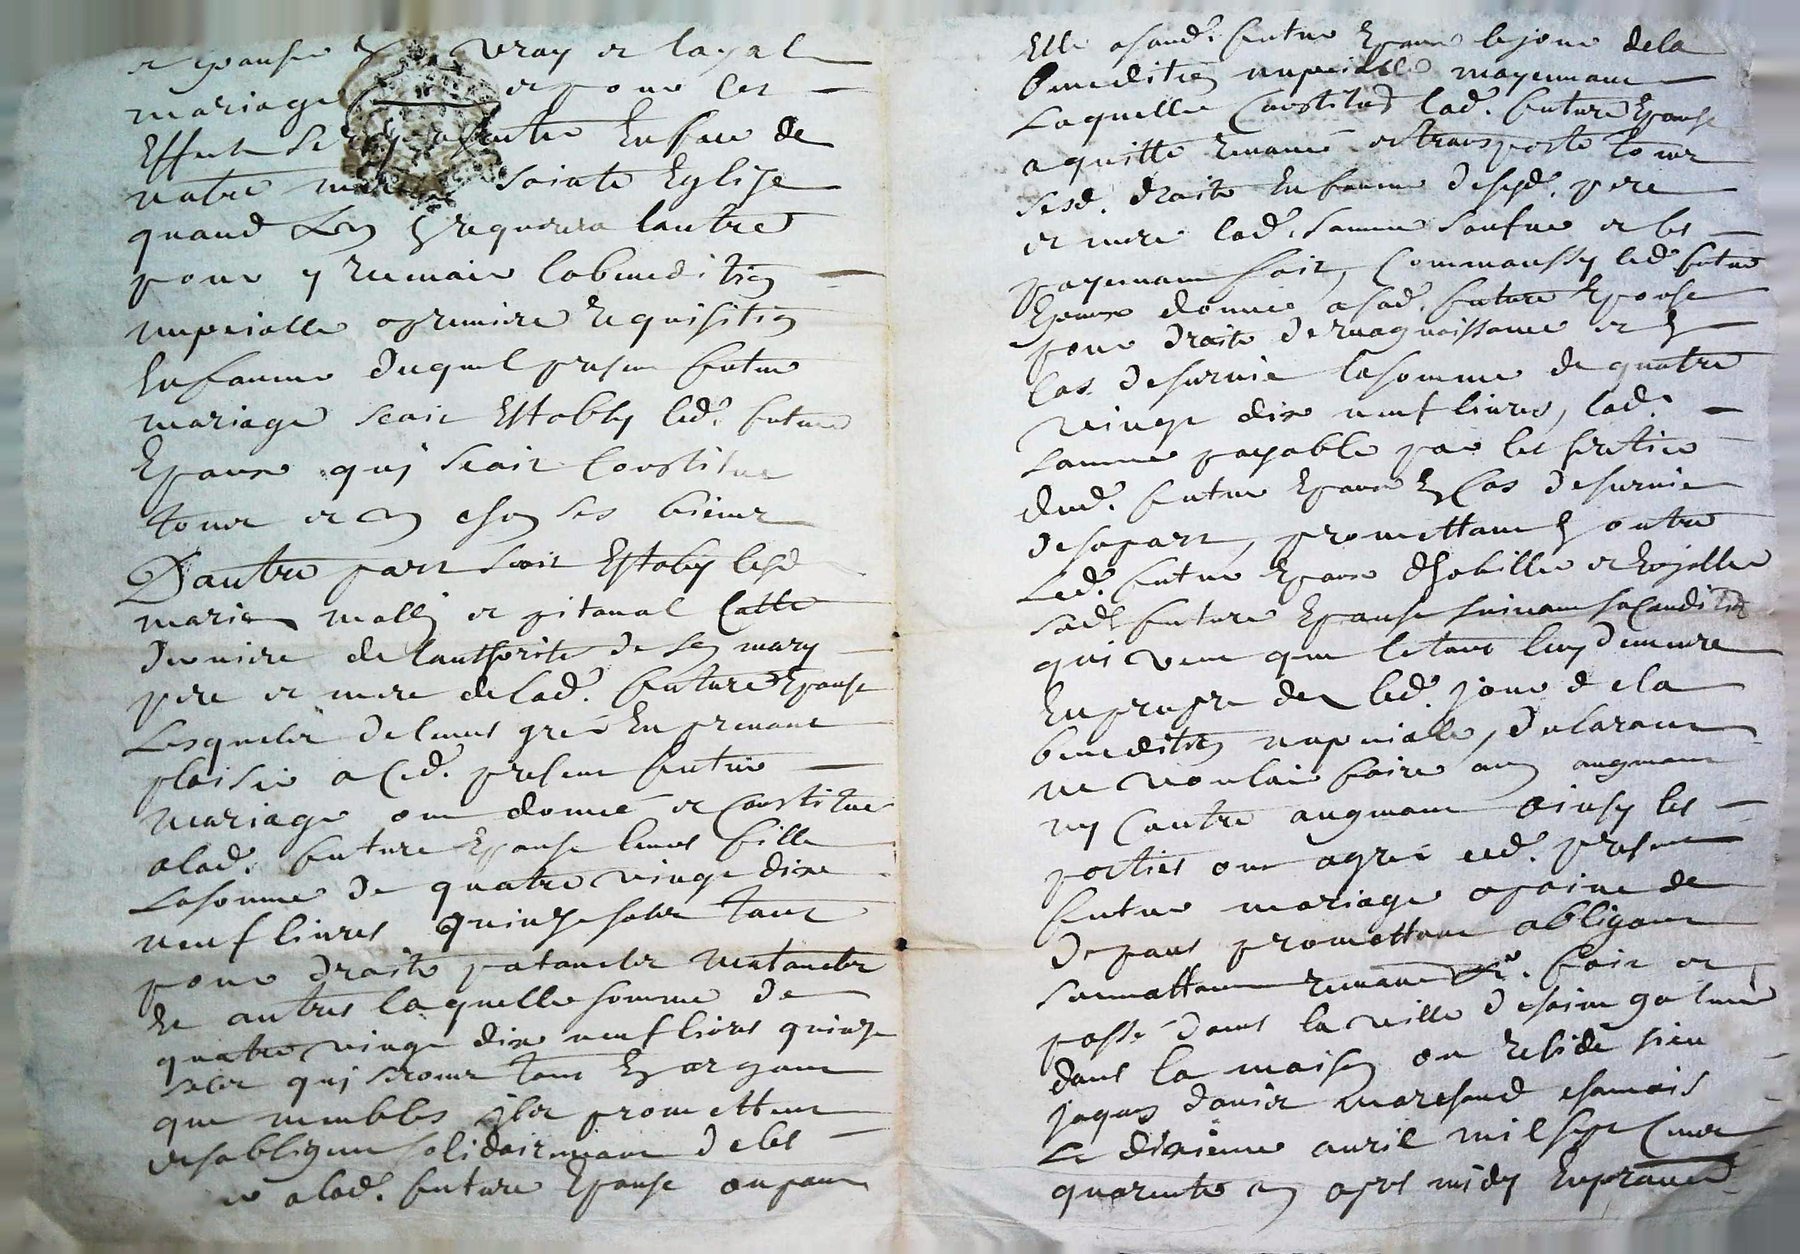 et epouse en vray et loyal
mariage et pour cet
Effet se presenter En face de
notre mere sainte Eglise
quand Lun En requerera lautre
pour y recevoir la benedition
nupcialle a premiere requisition
En faveur duquel presen futur
mariage seait Estably led. futur
Epoux quy seait Constitue
tour et un chascun ses biens
Dautre part seait Estably lesd
maries mally et pitaval Cette
derniere de lauthorité de son mary
pere et mere de lad. future Epouse
Lesquels de leurs gré En prenant
plaisir a Ced. presen futur
mariage on donné et Constitue
a lad. future Epouse leurs fille
La somme de quatre vingt dixe
neuf livres quinze sols tant
pour droits paternels maternels
et autres laquelle somme de
quatre vingt dix neuf livres quinze
sols quy seront tant En argant
que meubles ils promettent
et sobligent solidairemant de les
a lad. future Epouse ou pour
Elle a sond. futur Epoux le jour de la
benedition nupcialle moyennant
Laquelle Constitue lad. future Epouse
a quitté renoncé et transporté tour
sesd. droits En faveur de sesd. pere
et mere lad. somme sauf et les
payemant fait, Comm'aussy led. futur
Epoux donne a sad. future Epouse
pour droits de recognoissance et En
Cas de survie la somme de quatre
vingt dix neuf livres, lad.
somme payable par les heritiers
dud. futur Epoux En Cas de survie
de sa part, promettant En outre
Led. futur Epoux d'habiller et Enjoller
sad. future Epouse suivant sa Condition
qui veut que le tout luy demeure
En propre des led. jour de la
benedition nupcialle, declarant
ne vouloir faire aucun augmant
ny Contre augmant ainsy les
parties ont agréé ced. presen
futur mariage a paine de
depans promettant obligant
soumettant renoncant &c. fait et
passé dans la ville de saint galmier
dans la maison ou reside sieur
jaques marchand chamois
Le dixieme avril mil sept Cent
quarente un apres midy En presence